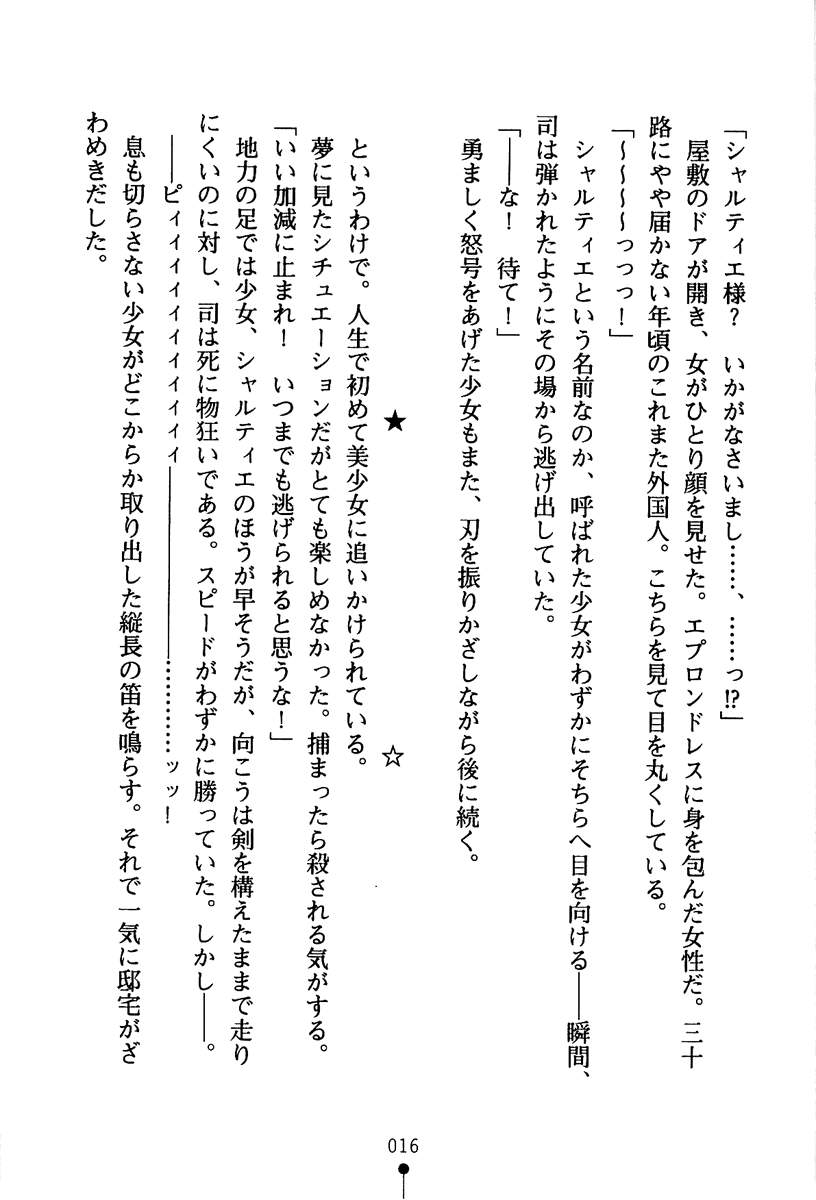 「シャルティエ様？　いかがなさいまし……、……っ!?」
　屋敷のドアが開き、女がひとり顔を見せた。エプロンドレスに身を包んだ女性だ。三十
路にやや届かない年頃のこれまた外国人。こちらを見て目を丸くしている。
「～～～～っっっ！」
　シャルティエという名前なのか、呼ばれた少女がわずかにそちらへ目を向ける――瞬間、
司は弾かれたようにその場から逃げ出していた。
「――な！　待て！」
　勇ましく怒号をあげた少女もまた、刃を振りかざしながら後に続く。
★　☆
　というわけで。人生で初めて美少女に追いかけられている。
　夢に見たシチュエーションだがとても楽しめなかった。捕まったら殺される気がする。
「いい加減に止まれ！　いつまでも逃げられると思うな！」
　地力の足では少女、シャルティエのほうが早そうだが、向こうは剣を構えたままで走り
にくいのに対し、司は死に物狂いである。スピードがわずかに勝っていた。しかし――。
　――ピィィィィィィィィィィ――――――――…………ッッ！
　息も切らさない少女がどこからか取り出した縦長の笛を鳴らす。それで一気に邸宅がざ
わめきだした。
016